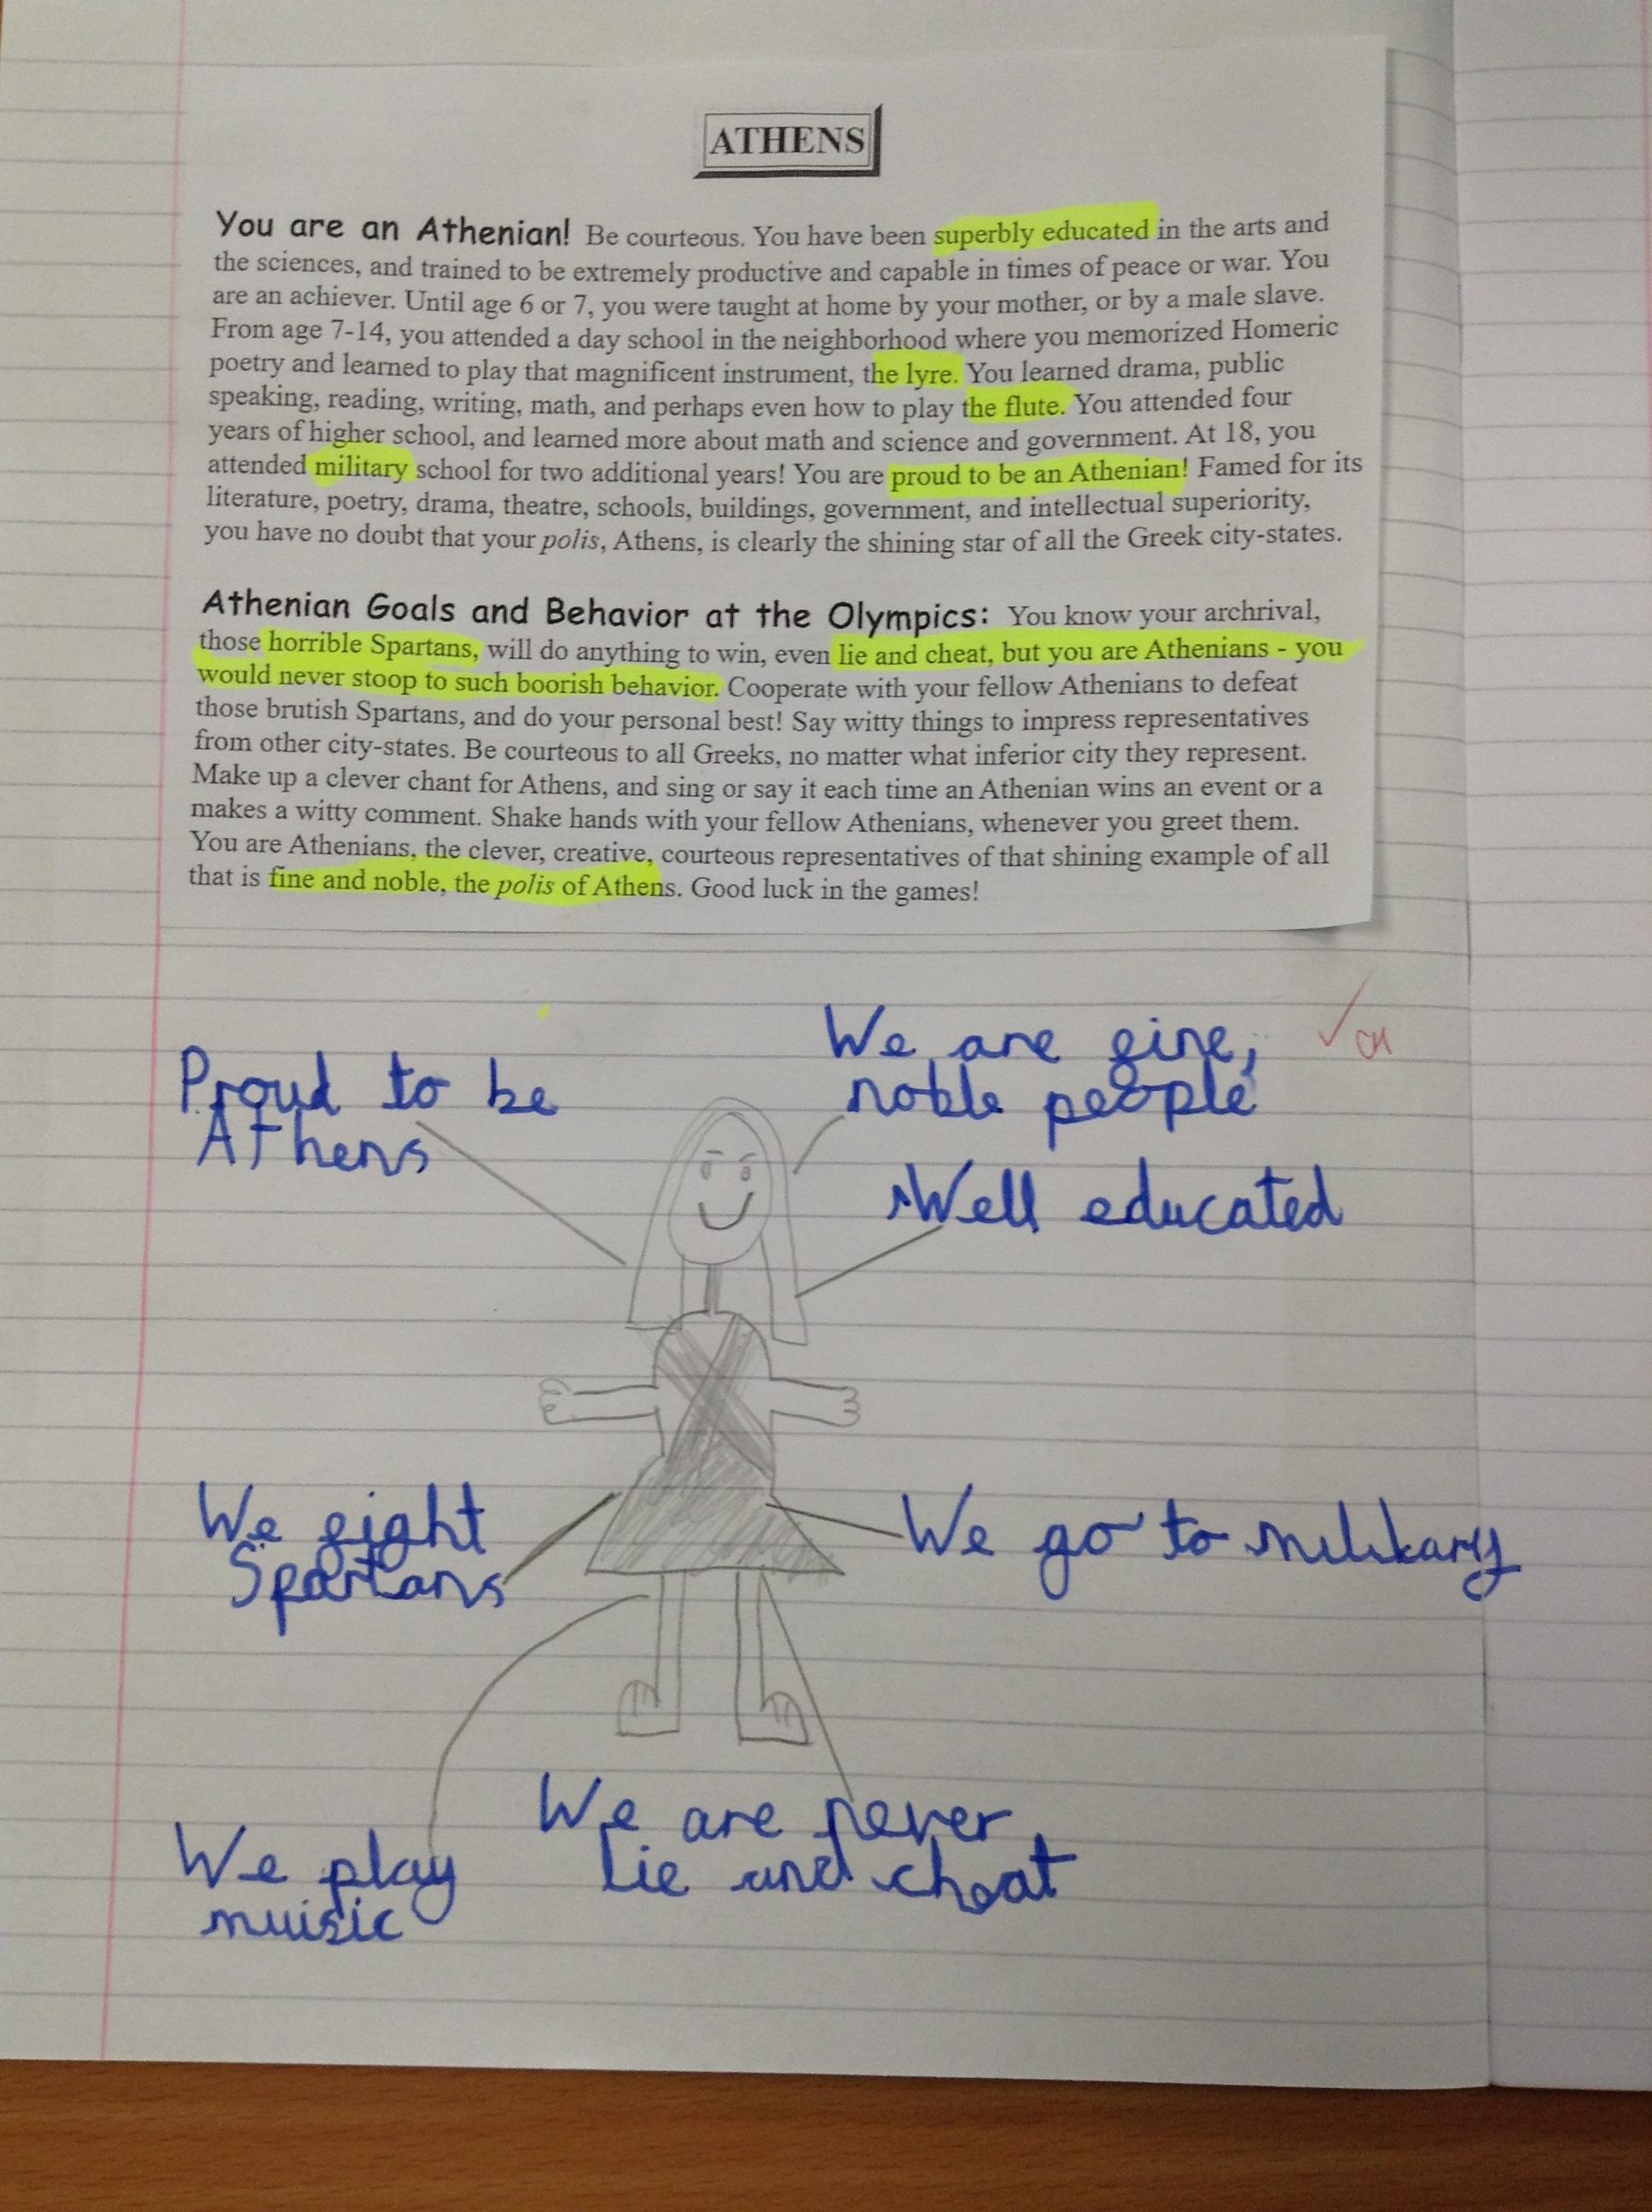 ATHENS
You are an Athenian! Be courteous. You have been superbly educated in the arts and
the sciences, and trained to be extremely productive and capable in times of peace or war. You
are an achiever. Until age 6 or 7, you were taught at home by your mother, or by a male slave.
From age 7-14, you attended a day school in the neighborhood where you memorized Homeric
poetry and learned to play that magnificent instrument, the lyre. You learned drama, public
speaking, reading, writing, math, and perhaps even how to play the flute. You attended four
years of higher school, and learned more about math and science and government. At 18, you
attended military school for two additional years! You are proud to be an Athenian! Famed for its
literature, poetry, drama, theatre, schools, buildings, government, and intellectual superiority,
you have no doubt that your polis, Athens, is clearly the shining star of all the Greek city-states.
Athenian Goals and Behavior at the Olympics: You know your archrival,
those horrible Spartans, will do anything to win, even lie and cheat, but you are Athenians - you
would never stoop to such boorish behavior. Cooperate with your fellow Athenians to defeat
those brutish Spartans, and do your personal best! Say witty things to impress representatives
from other city-states. Be courteous to all Greeks, no matter what inferior city they represent.
Make up a clever chant for Athens, and sing or say it each time an Athenian wins an event or a
makes a witty comment. Shake hands with your fellow Athenians, whenever you greet them.
You are Athenians, the clever, creative, courteous representatives of that shining example of all
that is fine and noble, the polis of Athens. Good luck in the games!
Proud to be
Athens
We are fine,
noble people
Well educated
We fight
Spartans
We go to military
We play
muisic
We are never
lie and cheat